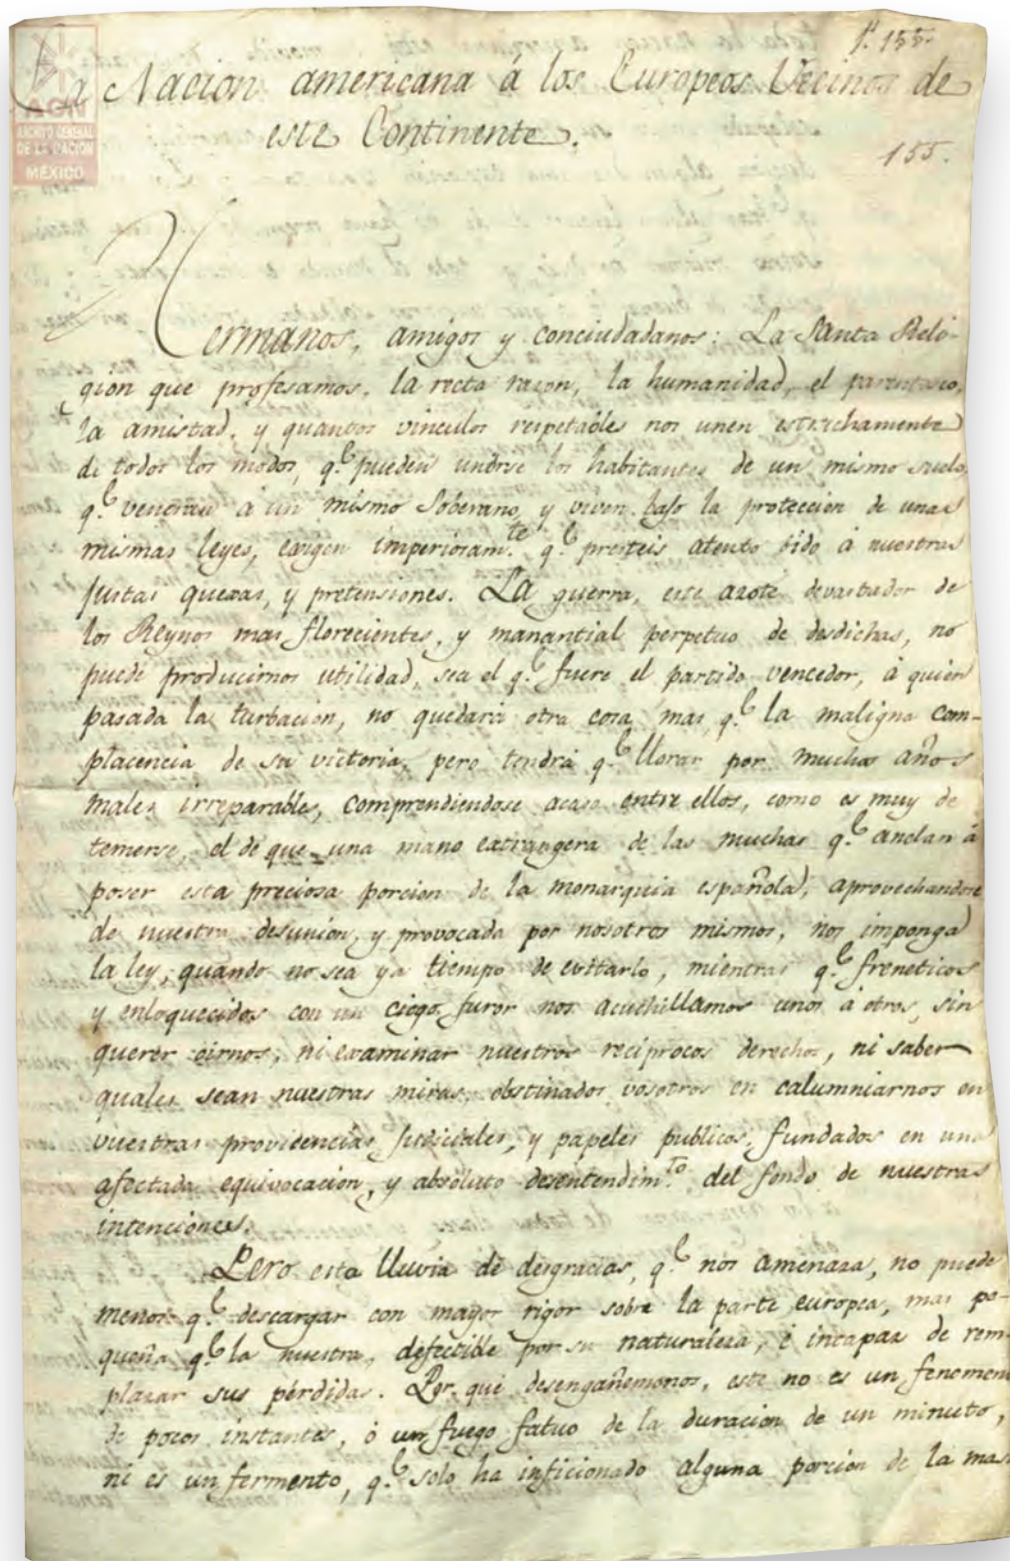 1ª 155.
La Nacion americana á los Europeos Vecinos de
este Continente.
155.
AGN
ARCHIVO GENERAL
DE LA NACIÓN
MÉXICO
Hermanos, amigos y conciudadanos: La Santa Reli-
gion que profesamos, la recta razon, la humanidad, el parentesco,
la amistad, y quantos vinculos respetables nos unen estrechamente
de todos los modos, q.e pueden unirse los habitantes de un mismo suelo,
q.e veneran á un mismo Soberano, y viven bajo la proteccion de unas
mismas leyes, exigen imperiosam.te q.e presteis atento oido á nuestras
justas quexas, y pretensiones. La guerra, este azote devastador de
los Reynos mas florecientes, y manantial perpetuo de desdichas, no
puede producirnos utilidad, sea el q.e fuere el partido vencedor, á quien
pasada la turbacion, no quedará otra cosa mas q.e la maligna com-
placencia de su victoria, pero tendrá q.e llorar por muchos años
males irreparables, comprendiendose acaso entre ellos, como es muy de
temerse, el de que una mano extrangera de las muchas q.e anelan á
poser esta preciosa porcion de la monarquia española, aprovechandose
de nuestra desunion, y provocada por nosotros mismos, nos imponga
la ley, quando no sea ya tiempo de evitarlo, mientras q.e freneticos
y enloquecidos con un ciego furor nos acuchillamos unos á otros, sin
querer oirnos, ni examinar nuestros reciprocos derechos, ni saber
quales sean nuestras miras, obstinados vosotros en calumniarnos en
vuestras providencias judiciales, y papeles publicos, fundados en una
afectada equivocacion, y absoluto desentendim.to del fondo de nuestras
intenciones.
Pero esta lluvia de desgracias, q.e nos amenaza, no puede
menos q.e descargar con mayor rigor sobre la parte europea, mas pe-
queña q.e la nuestra, defectible por su naturaleza, é incapaz de rem-
plazar sus pérdidas. Por que desengañemonos, este no es un fenomeno
de pocos instantes, ó un fuego fatuo de la duracion de un minuto,
ni es un fermento, q.e solo ha inficionado alguna porcion de la mas